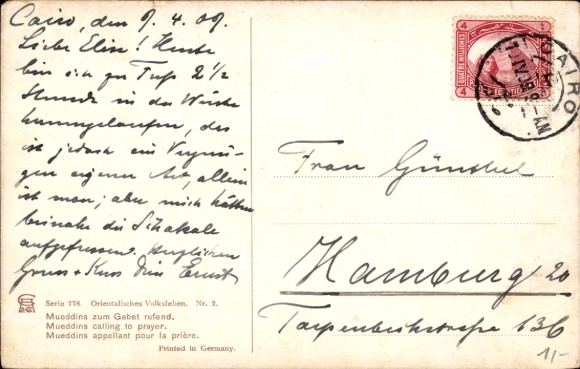 Cairo, den 9. 4. 09.
Liebe Elin! Heute
bin ich zu Fuß 2 1/2
Stunde in der Wüste
herumgelaufen, das
ist jedoch ein Vergnü-
gen eigener Art, allein
ist man; aber mich hätten
beinahe die Schakale
aufgefressen. Herzlichen
Gruss + Kuss Dein Ernst
Serie 778. Orientalisches Volksleben. Nr. 2.
Mueddins zum Gebet rufend.
Mueddins calling to prayer.
Mueddins appellant pour la prière.
Printed in Germany.
4 4
QUATRE MILLIEMES
CAIRO
Frau Günthel
Hamburg 20
Tarpenbeckstraße 136
11/-